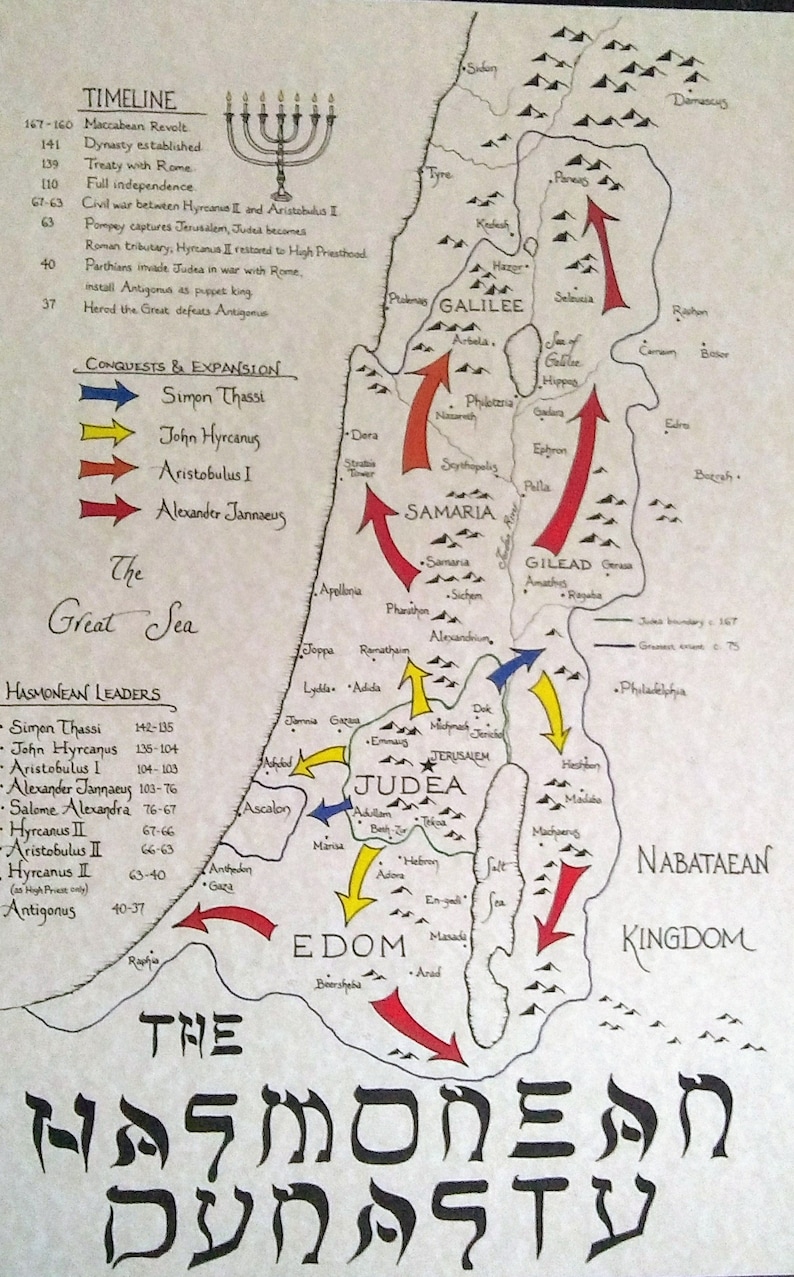 TIMELINE
167-160 Maccabean Revolt
141 Dynasty established
139 Treaty with Rome
110 Full independence
67-63 Civil war between Hyrcanus II and Aristobulus II
63 Pompey captures Jerusalem, Judea becomes
Roman tributary; Hyrcanus II restored to High Priesthood
40 Parthians invade Judea in war with Rome,
install Antigonus as puppet king
37 Herod the Great defeats Antigonus
CONQUESTS & EXPANSION
Simon Thassi
John Hyrcanus
Aristobulus I
Alexander Jannaeus
The
Great Sea
HASMONEAN LEADERS
• Simon Thassi 142-135
• John Hyrcanus 135-104
• Aristobulus I 104-103
• Alexander Jannaeus 103-76
• Salome Alexandra 76-67
• Hyrcanus II 67-66
• Aristobulus II 66-63
Hyrcanus II 63-40
(as High Priest only)
Antigonus 40-37
Sidon
Damascus
Tyre
Paneas
Kedesh
Hazor
Ptolemais
GALILEE
Seleucia
Raphon
Arbela
Sea of
Galilee
Carnaim
Bosor
Hippos
Philoteria
Nazareth
Gadara
Dora
Edrei
Ephron
Stratos
Tower
Scythopolis
Bozrah
Pella
SAMARIA
Jordan River
Samaria
GILEAD
Gerasa
Amathus
Ragaba
Apollonia
Sichem
Pharathon
Judea boundary c. 167
Alexandrium
Greatest extent c. 75
Joppa
Ramathaim
Lydda
Adida
Philadelphia
Dok
Jamnia
Gazara
Michmash
Jericho
Emmaus
JERUSALEM
Ashdod
Heshbon
JUDEA
Madaba
Ascalon
Adullam
Tekoa
Beth-Zur
Marisa
Machaerus
Hebron
Adora
Salt
Sea
NABATAEAN
KINGDOM
Anthedon
Gaza
En-gedi
Masada
EDOM
Raphia
Arad
Beersheba
THE
HASMONEAN
DYNASTY